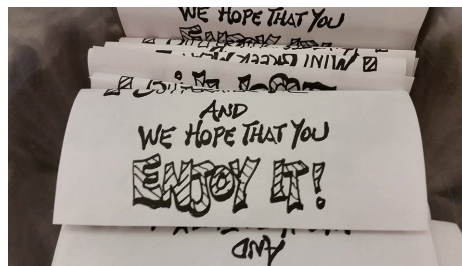 WE HOPE THAT YOU
MINI GREEK
AND
WE HOPE THAT YOU
ENJOY IT!
AND